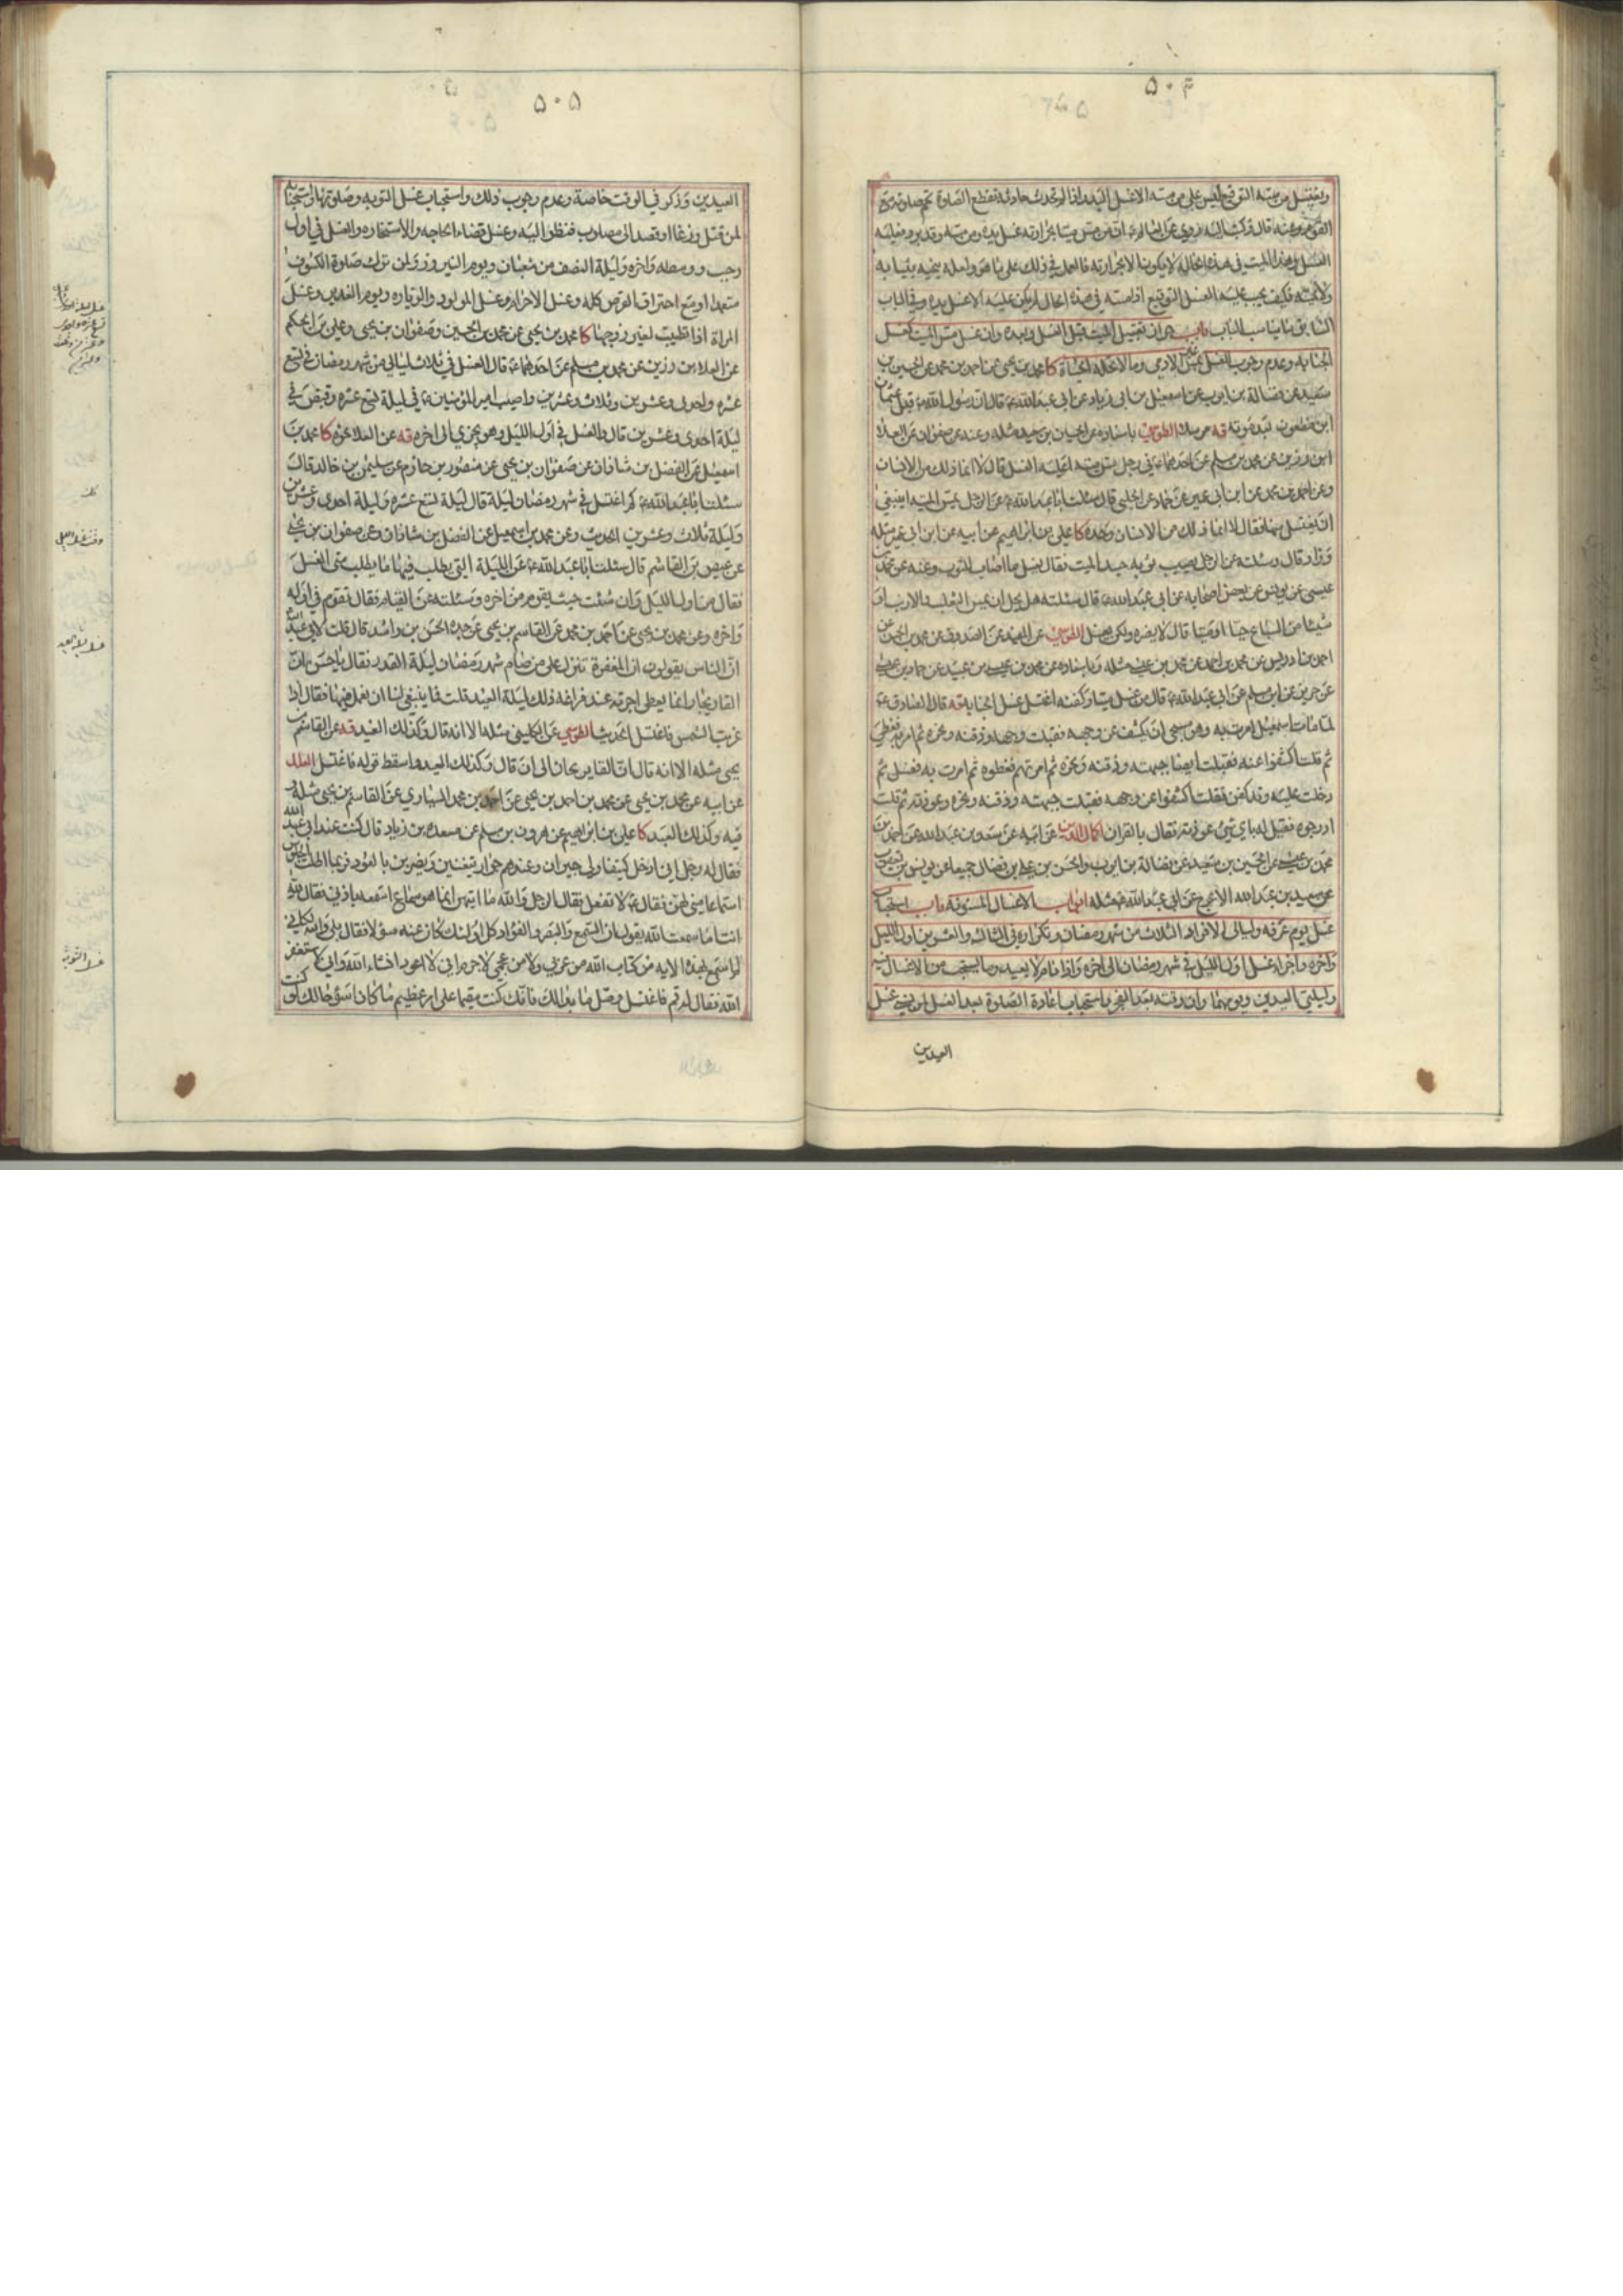 ويغتسل من مسه التوقيع ليس على من مسه الا غسل اليد واذا لم تحدث حادثة تقطع الصلوة تمم صلوته مع
القوم وعنه قال وكتب اليه روى عن العالم ع ان من مس ميتا بحرارته غسل يده ومن مسه وقد برد فعليه
الغسل وهذا الميت في هذه الحال لا يكون الا بحرارته فالعمل في ذلك على ما هو ولعله ينحيه بثيابه
ولا يمسه فكيف يجب عليه الغسل التوقيع اذا مسه في هذه الحال لم يكن عليه الا غسل يده وفي الباب
السابق ما يناسب الباب باب جواز تقبيل الميت قبل الغسل وبعده وان غسل مس الميت كغسل
الجنابة وعدم وجوب الغسل بمس غير الادمي وما لا تحله الحياة كا محمد بن يحيى عن احمد بن محمد عن الحسين بن
سعيد عن فضالة بن ايوب عن اسمعيل بن ابي زياد عن ابي عبد الله ع قال ان رسول الله ص قبل عثمان
ابن مظعون بعد موته قه مرسلا الطوسي باسناده عن الحسين بن سعيد مثله وعنه عن صفوان عن العلا
ابن رزين عن محمد بن مسلم عن احدهما ع في رجل مس ميتة اعليه الغسل قال لا انما ذلك من الانسان
وعن احمد بن محمد عن ابن ابي عمير عن حماد عن الحلبي قال سئلت ابا عبد الله ع عن الرجل يمس الميتة اينبغي
ان يغتسل منها فقال لا انما ذلك من الانسان وحده كا علي بن ابراهيم عن ابيه عن ابن ابي عمير مثله
وزاد قال وسئلته عن الرجل يصيب ثوبه جسد الميت فقال يغسل ما اصاب الثوب وعنه عن محمد بن
عيسى عن يونس عن بعض اصحابه عن ابي عبد الله ع قال سئلته هل يحل ان يمس الثعلب والارنب او
شيئا من السباع حيا او ميتا قال لا يضره ولكن يغسل الطوسي عن المفيد عن الصدوق عن محمد بن الحسن عن
احمد بن ادريس عن محمد بن احمد عن محمد بن عيسى مثله وباسناده عن محمد بن عيسى بن عبيد عن حماد بن عيسى
عن حريز عن ابن مسلم عن ابي عبد الله ع قال من غسل ميتا وكفنه اغتسل غسل الجنابة قه قال الصادق ع
لما مات اسمعيل امرت به وهو مسجى ان يكشف عن وجهه فقبلت وجبهته وذقنه ونحره ثم امرت به فغطي
ثم قلت اكشفوا عنه فقبلت ايضا جبهته وذقنه ونحره ثم امرتهم فغطوه ثم امرت به فغسل ثم
دخلت عليه وقد كفن فقلت اكشفوا عن وجهه فقبلت جبهته وذقنه ونحره وعوذته ثم قلت
ادرجوه فقيل له باي شيء عوذته فقال بالقران اكمال الدين عن ابيه عن سعد بن عبد الله عن احمد بن
محمد بن عيسى عن الحسين بن سعيد عن فضالة بن ايوب والحسن بن علي بن فضال جميعا عن يونس بن يعقوب
عن سعيد بن عبد الله الاعرج عن ابي عبد الله ع مثله ابواب الاغسال المسنونة باب استحباب
غسل يوم عرفه وليالي الافراد الثلاث من شهر رمضان وتكراره في الثالثه والعشرين اول الليل
واخره واجزاء غسل اول الليل في شهر رمضان الى اخره واذا نام لا يعيد وما يستحب من الاغسال فيه
وليلتي العيدين ويومهما وان وقته بعد الفجر واستحباب اعادة الصلوة بعد الغسل لمن نسي غسل
العيدين
۵۰۵
العيدين وذكر في الوقت خاصة وعدم وجوب ذلك واستحباب غسل التوبه وصلوتها واستحبابه
لمن قتل وزغا او قصد الى مصلوب فنظر اليه وغسل قضاء الحاجه والاستخاره والغسل في اول
رجب ووسطه واخره وليلة النصف من شعبان ويوم النيروز ولمن ترك صلوة الكسوف
متعمدا ومع احتراق القرص كله وغسل الاحرام وغسل المولود والزياره ويوم الغدير وغسل
المراة اذا تطيبت لغير زوجها كا محمد بن يحيى عن محمد بن الحسين وصفوان بن يحيى وعلي بن الحكم
عن العلا بن رزين عن محمد بن مسلم عن احدهما ع قال الغسل في ثلاث ليالي من شهر رمضان في تسع
عشره واحدى وعشرين وثلاث وعشرين واصيب امير المؤمنين ع في ليلة تسع عشره وقبض في
ليلة احدى وعشرين قال والغسل في اول الليل وهو يجزي الى اخره قه عن العلا نحوه كا محمد بن
اسمعيل عن الفضل بن شاذان عن صفوان بن يحيى عن منصور بن حازم عن سليمن بن خالد قال
سئلت ابا عبد الله ع كم اغتسل في شهر رمضان ليلة قال ليلة تسع عشره وليلة احدى وعشرين
وليلة ثلاث وعشرين الحديث وعن محمد بن اسمعيل عن الفضل بن شاذان وعن صفوان بن يحيى
عن عيص بن القاسم قال سئلت ابا عبد الله ع عن الليلة التي يطلب فيها ما يطلب متى الغسل
فقال من اول الليل وان شئت حيث يقوم من اخره وسئلته عن القيام فقال تقوم في اوله
واخره وعن محمد بن يحيى عن احمد بن محمد عن القاسم بن يحيى عن جده الحسن بن راشد قال قلت لابي عبد الله ع
ان الناس يقولون ان المغفرة تنزل على من صام شهر رمضان ليلة القدر فقال يا حسن ان
القاريجار انما يعطى اجرته عند فراغه ذلك ليلة العيد قلت فما ينبغي لنا ان نعمل فيها فقال اذا
غربت الشمس فاغتسل الحديث الطوسي عن الكليني مثله الا انه قال وكذلك العيد قه عن القاسم بن
يحيى مثله الا انه قال ان القاريجان الى ان قال وكذلك العيد واسقط قوله فاغتسل العلل
عن ابيه عن محمد بن يحيى عن محمد بن احمد بن يحيى عن احمد بن محمد السياري عن القاسم بن يحيى مثله و
فيه وكذلك العيد كا علي بن ابراهيم عن هرون بن مسلم عن مسعدة بن زياد قال كنت عند ابي عبد الله
فقال له رجل اني ادخل كنيفا ولي جيران وعندهم جوار يتغنين ويضربن بالعود فربما اطلت الجلوس
استماعا مني لهن فقال ع لا تفعل فقال الرجل والله ما اتيهن انما هو سماع اسمعه باذني فقال لله
انت اما سمعت الله يقول ان السمع والبصر والفؤاد كل اولئك كان عنه مسؤلا فقال بلى والله لكاني
لم اسمع بهذه الايه من كتاب الله من عربي ولا من عجمي لا جرم اني لا اعود انشاء الله واني لاستغفر
الله فقال له قم فاغتسل وصل ما بدا لك فانك كنت مقيما على امر عظيم ما كان اسوء حالك لو كنت
وقت غسل الليل
غسل ليلة العيد
غسل التوبة